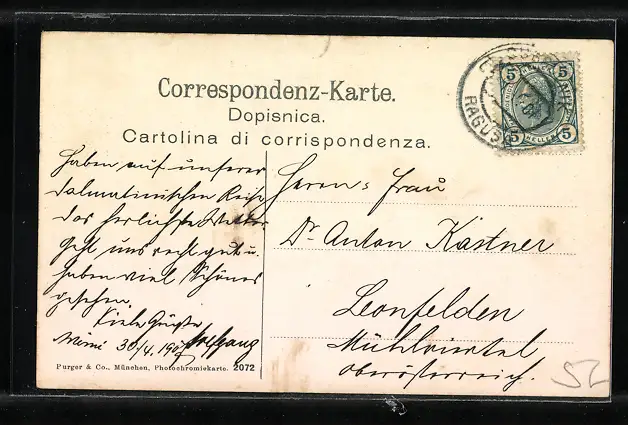 Correspondenz-Karte.
Dopisnica.
Cartolina di corrispondenza.
5 5
5 5
HELLER
RAGUSA
Haben auf unserer
dalmatinischen Reise
das herlichste Wetter
Geht uns recht gut u.
haben viel Schönes
gesehen.
Viele Grüße
Mimi 30/4. 1907 Wolfgang
Herrn u Frau
Dr. Anton Kastner
Leonfelden
Mühlviertel
Oberösterreich.
Purger & Co., München, Photochromiekarte. 2072